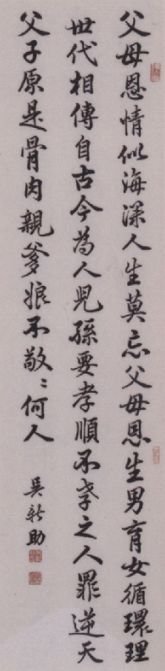 父母恩情似海深人生莫忘父母恩生男育女循環理
世代相傳自古今為人兒孫要孝順不孝之人罪逆天
父子原是骨肉親爹娘不敬〻何人
吳新助